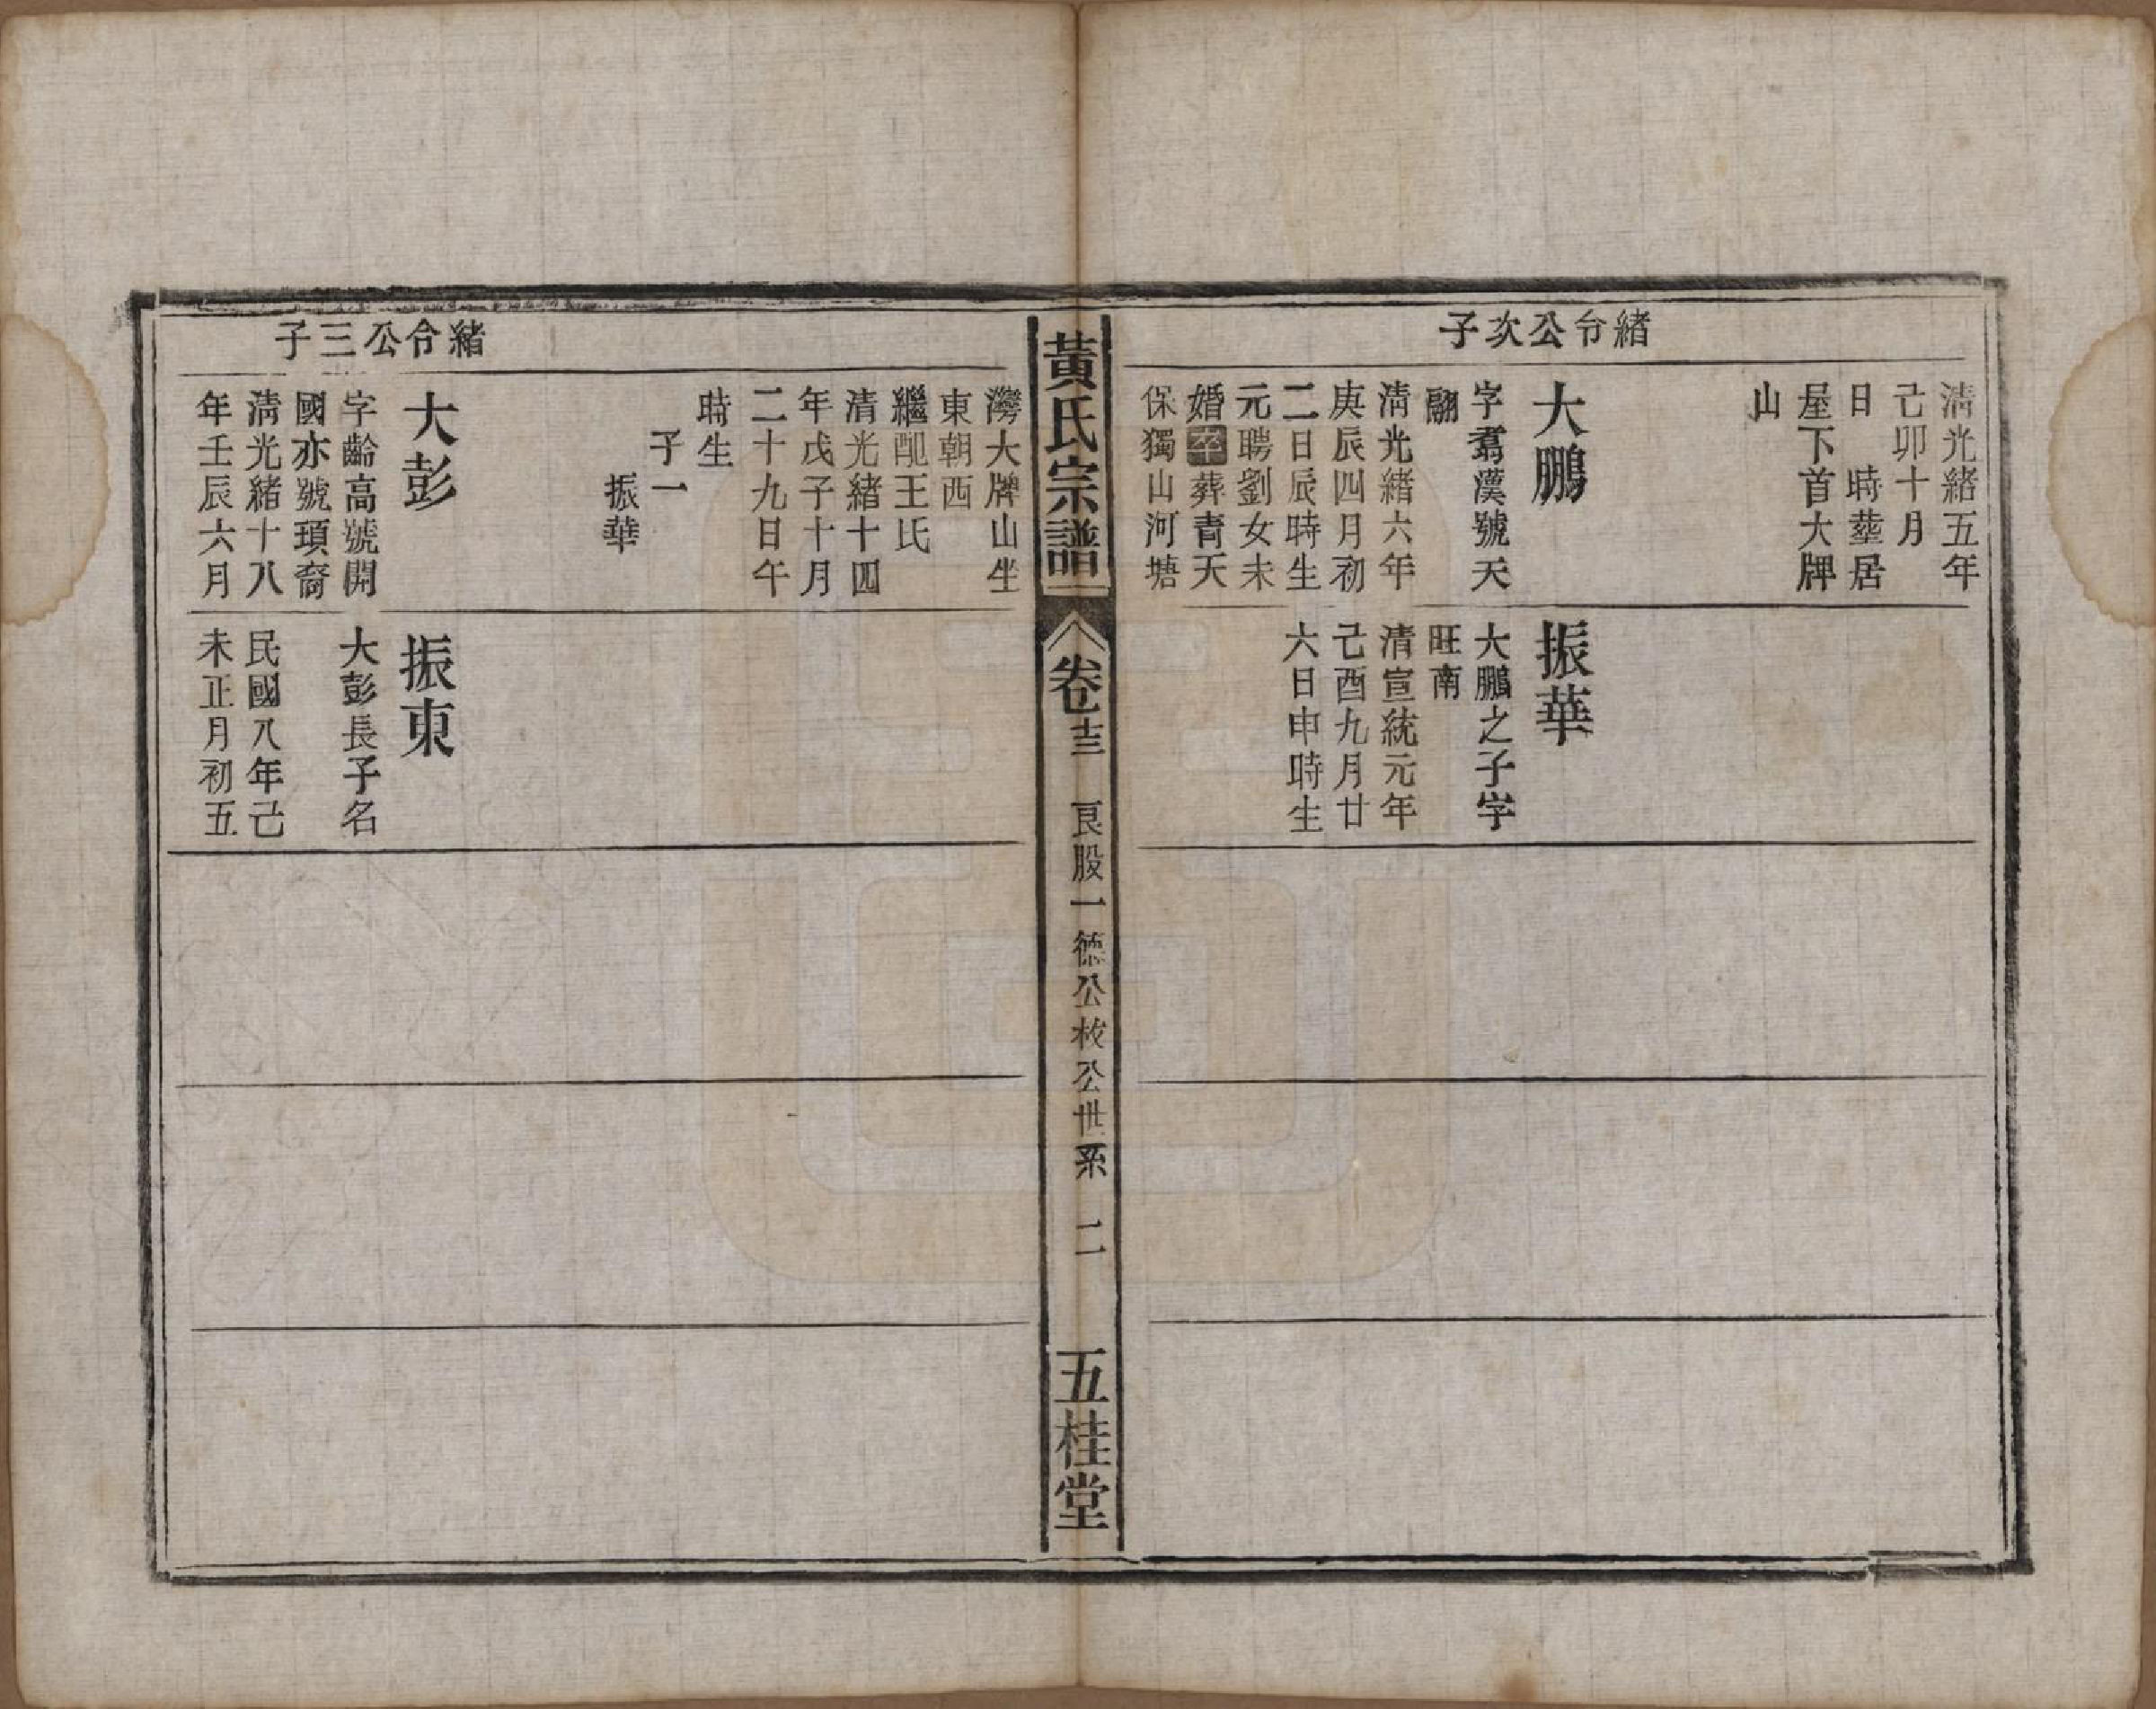 緒令公次子
清光緒五年
己卯十月
日　時塟居
屋下首大牌
山
大鵬
字翥漢號天
翮
清光緒六年
庚辰四月初
二日辰時生
元聘劉女未
婚卒葬青天
保獨山河塘
振華
大鵬之子字
旺南
清宣統元年
己酉九月廿
六日申時生
黃氏宗譜
卷十三
艮股一德公枚公世系　二
五桂堂
緒令公三子
灣大牌山坐
東朝西
繼配王氏
清光緒十四
年戊子十月
二十九日午
時生
子一
振華
大彭
字齡高號開
國亦號頊裔
清光緒十八
年壬辰六月
振東
大彭長子名
民國八年己
未正月初五